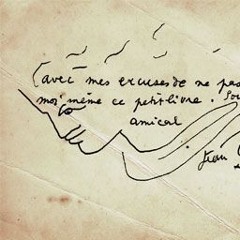 (avec mes excuses de ne pas
moi même ce petit livre. Sou
amical
Jean